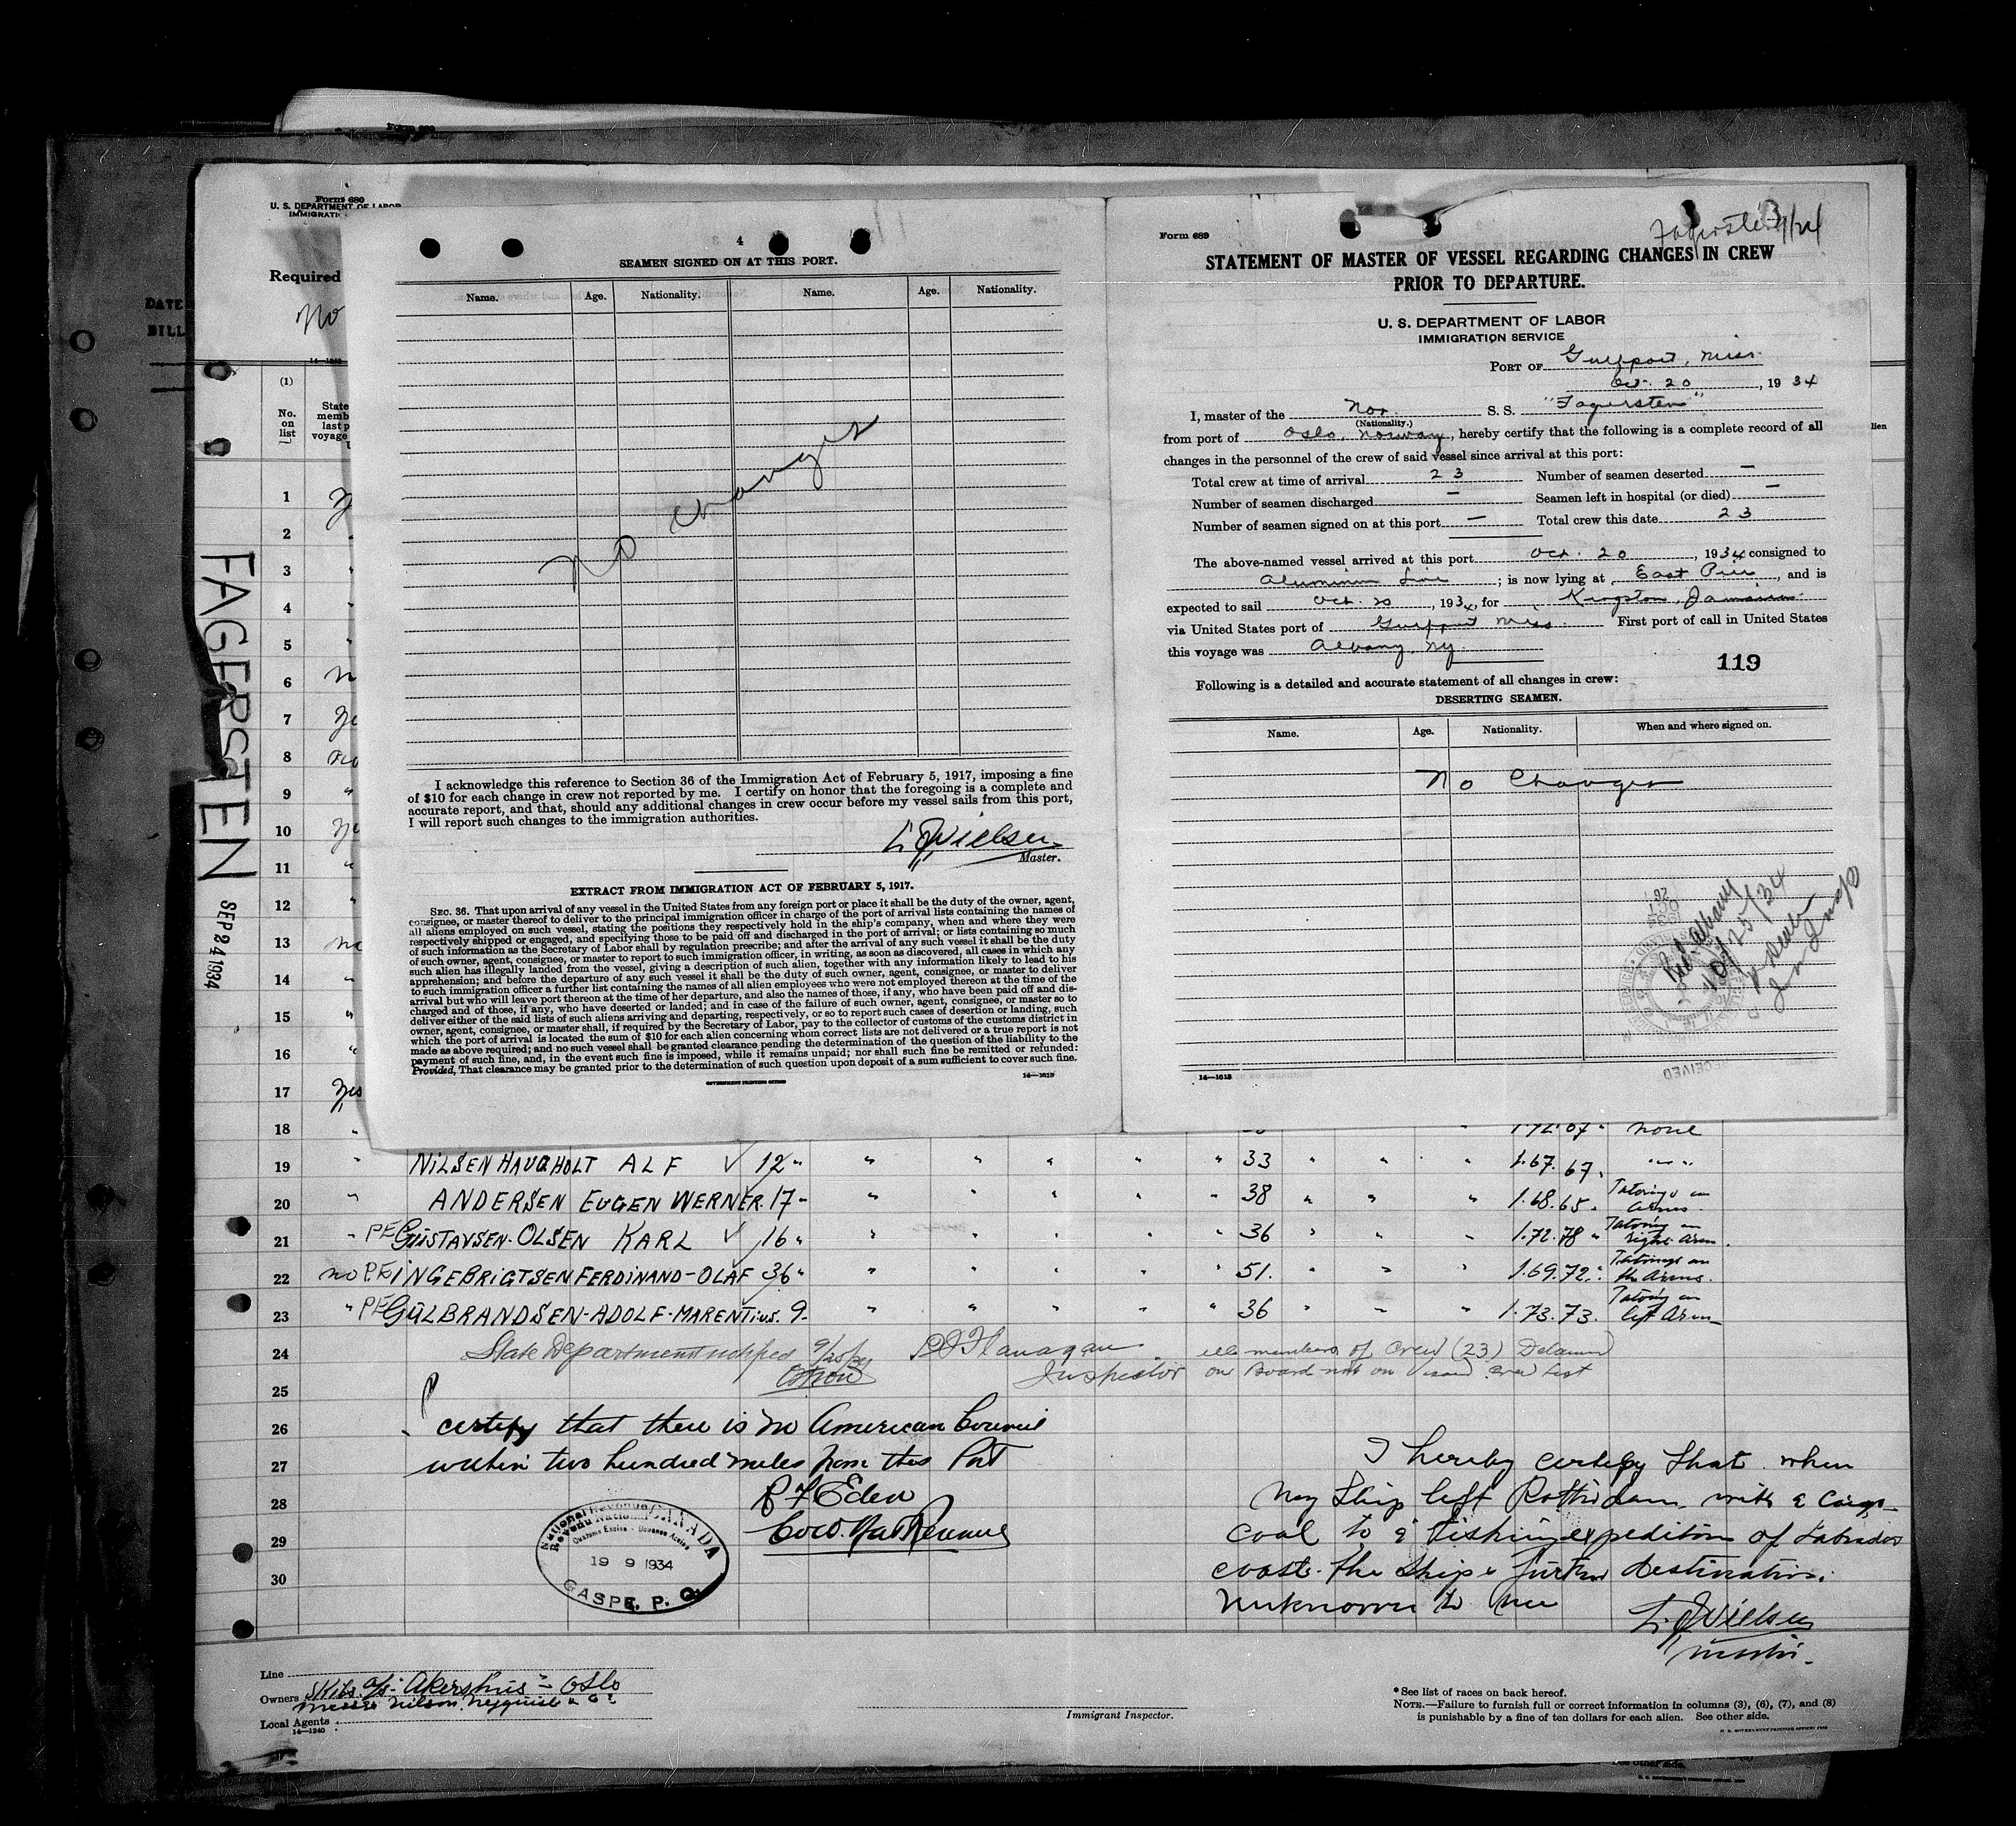 Form 680
U. S. DEPARTMENT OF LABOR
IMMIGRATI
Required
No
DATE
BILL
14—1240
(1)
No. on list
State
memb
last p
voyage
FAGERSTEN
SEP 24 1934
1
2
3
4
5
6
7
8
9
10
11
12
13
14
15
16
17 Yes
18
4
SEAMEN SIGNED ON AT THIS PORT.
Name. Age. Nationality. Name. Age. Nationality.
No changes
I acknowledge this reference to Section 36 of the Immigration Act of February 5, 1917, imposing a fine
of $10 for each change in crew not reported by me. I certify on honor that the foregoing is a complete and
accurate report, and that, should any additional changes in crew occur before my vessel sails from this port,
I will report such changes to the immigration authorities.
L. Nielsen
Master.
EXTRACT FROM IMMIGRATION ACT OF FEBRUARY 5, 1917.
SEC. 36. That upon arrival of any vessel in the United States from any foreign port or place it shall be the duty of the owner, agent,
consignee, or master thereof to deliver to the principal immigration officer in charge of the port of arrival lists containing the names of
all aliens employed on such vessel, stating the positions they respectively hold in the ship's company, when and where they were
respectively shipped or engaged, and specifying those to be paid off and discharged in the port of arrival; or lists containing so much
of such information as the Secretary of Labor shall by regulation prescribe; and after the arrival of any such vessel it shall be the duty
of such owner, agent, consignee, or master to report to such immigration officer, in writing, as soon as discovered, all cases in which any
such alien has illegally landed from the vessel, giving a description of such alien, together with any information likely to lead to his
apprehension; and before the departure of any such vessel it shall be the duty of such owner, agent, consignee, or master to deliver
to such immigration officer a further list containing the names of all alien employees who were not employed thereon at the time of the
arrival but who will leave port thereon at the time of her departure, and also the names of those, if any, who have been paid off and dis-
charged and of those, if any, who have deserted or landed; and in case of the failure of such owner, agent, consignee, or master so to
deliver either of the said lists of such aliens arriving and departing, respectively, or so to report such cases of desertion or landing, such
owner, agent, consignee, or master shall, if required by the Secretary of Labor, pay to the collector of customs of the customs district in
which the port of arrival is located the sum of $10 for each alien concerning whom correct lists are not delivered or a true report is not
made as above required; and no such vessel shall be granted clearance pending the determination of the question of the liability to the
payment of such fine, and, in the event such fine is imposed, while it remains unpaid; nor shall such fine be remitted or refunded:
Provided, That clearance may be granted prior to the determination of such question upon deposit of a sum sufficient to cover such fine.
GOVERNMENT PRINTING OFFICE 14—1613
Form 689
Fagersten 9/24
STATEMENT OF MASTER OF VESSEL REGARDING CHANGES IN CREW
PRIOR TO DEPARTURE.
U. S. DEPARTMENT OF LABOR
IMMIGRATION SERVICE
PORT OF Gulfport, Miss.
Oct. 20, 1934
I, master of the Nor. S. S. "Fagersten"
(Nationality.)
from port of Oslo, Norway, hereby certify that the following is a complete record of all
changes in the personnel of the crew of said vessel since arrival at this port:
Total crew at time of arrival 23 Number of seamen deserted —
Number of seamen discharged — Seamen left in hospital (or died) —
Number of seamen signed on at this port — Total crew this date 23
The above-named vessel arrived at this port Oct. 20, 1934 consigned to
Aluminum Line; is now lying at East Pier, and is
expected to sail Oct. 20, 1934, for Kingston, Jamaica
via United States port of Gulfport Miss. First port of call in United States
this voyage was Albany NY.
119
Following is a detailed and accurate statement of all changes in crew:
DESERTING SEAMEN.
Name. Age. Nationality. When and where signed on.
No Changes
10/25/34
RECEIVED
14—1613
lien
1.72. 67 " none
19 " NILSEN HAUGHOLT ALF √ 12 " " " " " " 33 " " " 1.67. 67. " " "
20 " ANDERSEN EUGEN WERNER. 17 " " " " " " 38 " " " 1.68. 65. Tatovings on Arms.
21 " PE GUSTAVSEN-OLSEN KARL √ 16 " " " " " " 36 " " " 1.72. 78 " Tatoving on right Arm.
22 no PE INGEBRIGTSEN FERDINAND-OLAF 36 " " " " " " 51. " " " 1.69. 72. " Tatovings on the Arms.
23 " PE GULBRANDSEN-ADOLF-MARENTIUS. 9. " " " " " 36 " " " 1.73. 73. Tatoving on left Arm
24 State Department notified 9/25/34 Flanagan members of crew (23) Detained
25 Inspector on Board not on Visaed crew List
26 certify that there is no American Council
27 within two hundred miles from this Port
28 R F Eden
29
30
National Revenue CANADA
Revenu National
Customs Excise - Douanes Accise
19 9 1934
GASPE, P. Q.
I hereby certify that when
my Ship left Rotterdam with a Cargo
Coal to a Fishing expedition of Labrador
coast. the ships further destination
unknown to me
L. Nielsen
Master.
Line
Owners Skibs a/s "Akershus" - Oslo
Local Agents
14—1240
Immigrant Inspector.
* See list of races on back hereof.
NOTE.—Failure to furnish full or correct information in columns (3), (6), (7), and (8)
is punishable by a fine of ten dollars for each alien. See other side.